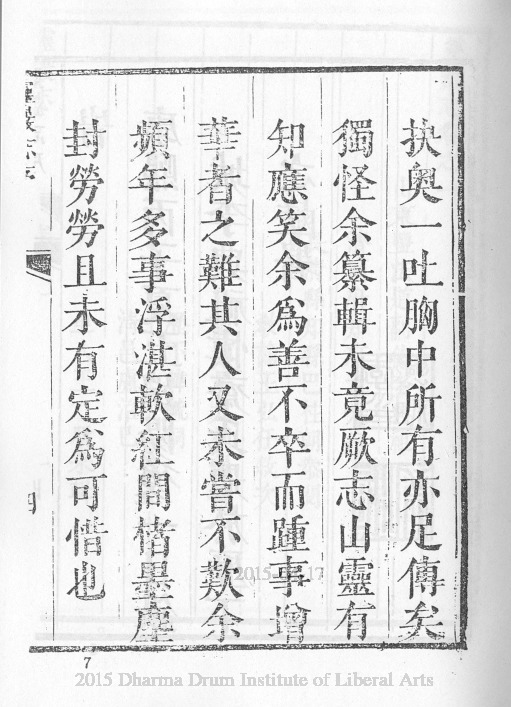 抉奧一吐胸中所有亦足傳矣
獨怪余纂輯未竟厥志山靈有
知應笑余為善不卒而踵事增
華者之難其人又未嘗不歎余
頻年多事浮湛軟紅間楮墨塵
封勞勞且未有定為可惜也
四
7
2015 Dharma Drum Institute of Liberal Arts